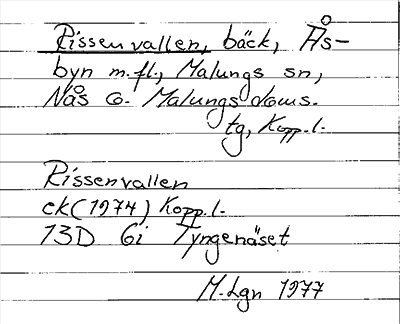 Rissenvallen, bäck, Ås-
byn m.fl., Malungs sn,
Nås o. Malungs doms.
tg, Kopp.l.
Rissenvallen
ek (1974) Kopp.l.
13D 6i Tyngenäset
M.Lgn 1977